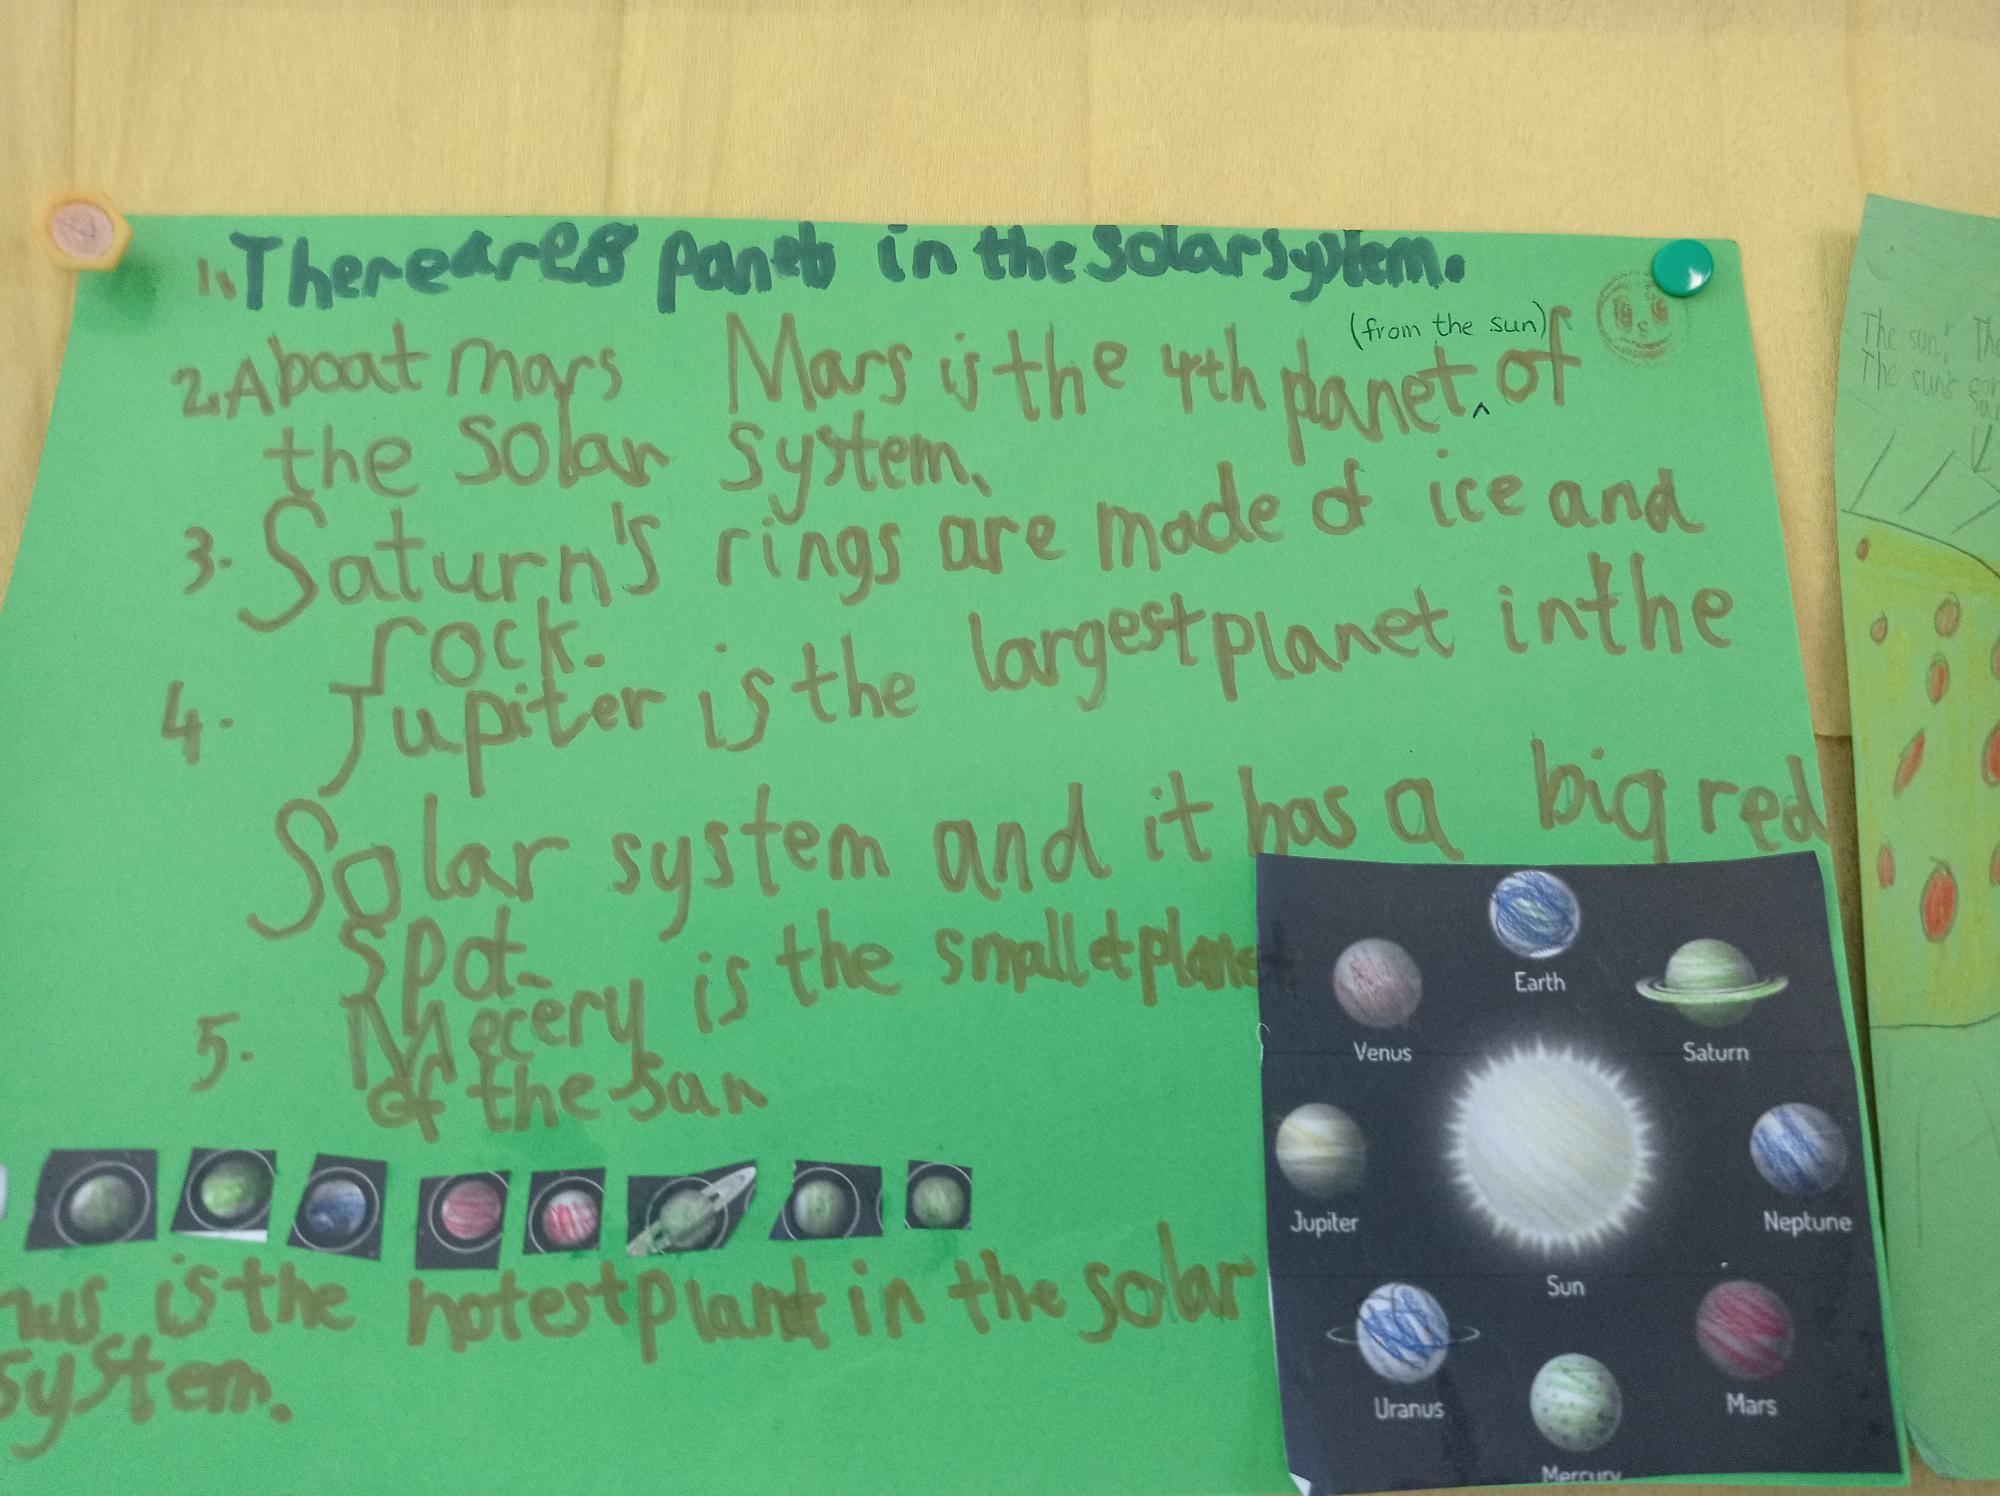 1. There are 8 panets in the solar system.
(from the sun)
2. Aboat mars Mars is the 4th planet ^ of
the solar system.
3. Saturn's rings are made of ice and
rock.
4. Jupiter is the largest planet in the
Solar system and it has a big red
spot.
5. Mecery is the smallet planet
of the san
nus is the hotest plant in the solar
system.
Earth
Venus
Saturn
Jupiter
Neptune
Sun
Uranus
Mars
Mercury
The sun's The
The sun's